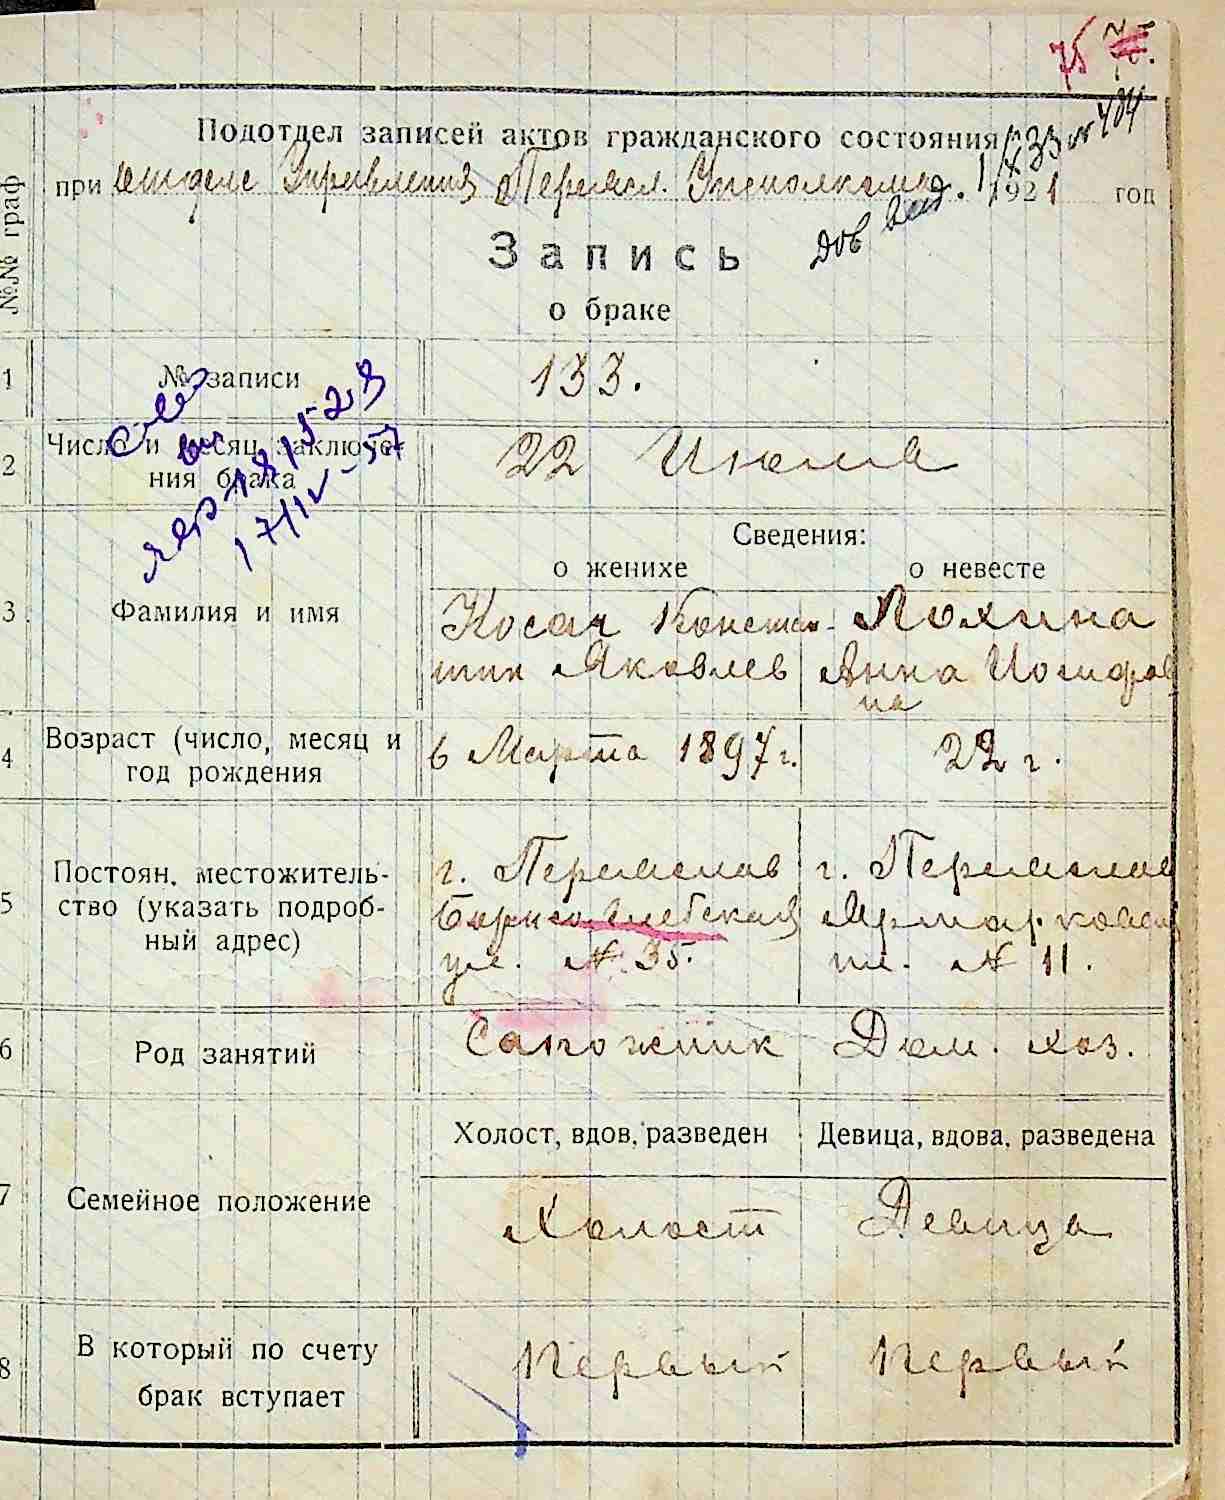 75
Подотдел записей актов гражданского состояния
при отделе Управления Переясл. Исполкома. 1921 год
№№ граф
Запись
о браке
1 № записи 133.
2 Число и месяц заключе-
ния брака 22 Июля
Сведения:
о женихе о невесте
3 Фамилия и имя Косач Констан- Лохина
тин Яковлев Анна Иосифов
на
4 Возраст (число, месяц и
год рождения 6 Марта 1897 г. 22 г.
5 Постоян. местожитель-
ство (указать подроб-
ный адрес)
г. Переяслав г. Переяслав
Борисо Глебская Ярмарковая
ул. № 35. пл. № 11.
6 Род занятий Сапожник Дом. хоз.
Холост, вдов, разведен Девица, вдова, разведена
7 Семейное положение Холост Девица
8 В который по счету
брак вступает Первый Первый
17/IV-57